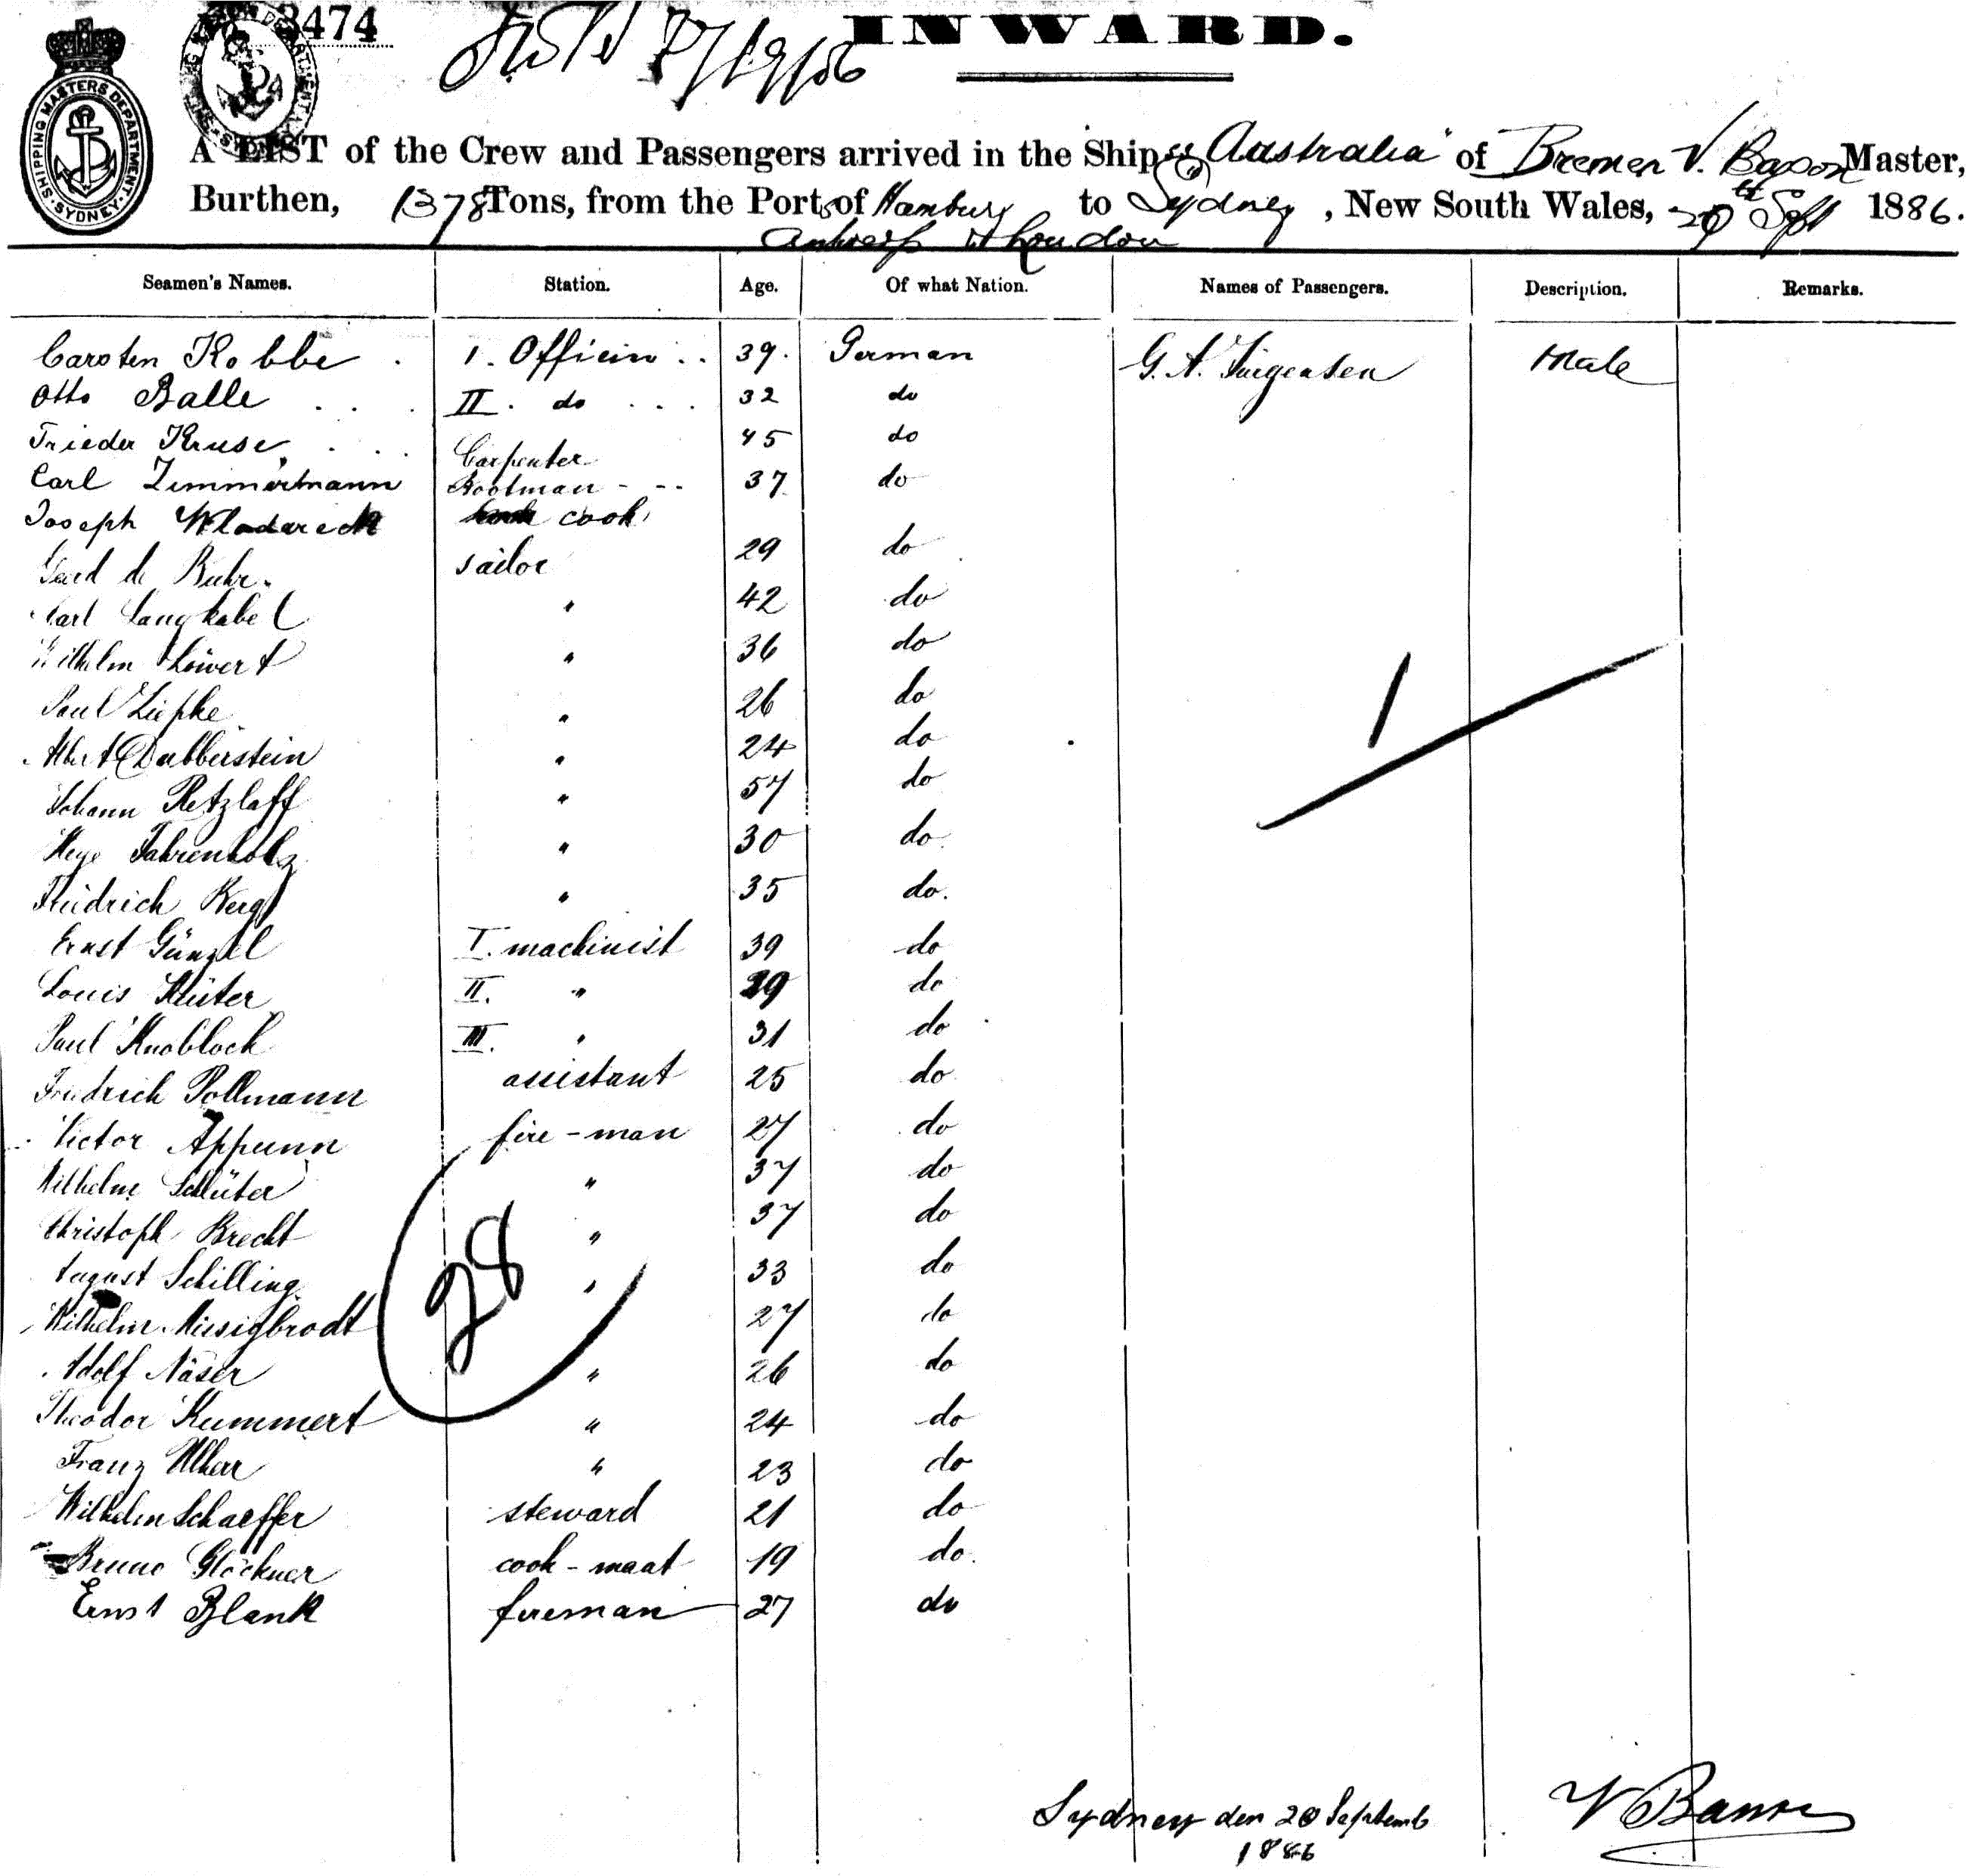 3474
INWARD.
SHIPPING MASTERS DEPARTMENT SYDNEY
A LIST of the Crew and Passengers arrived in the Ship "Australia" of Bremen V. Master,
Burthen, 1378 Tons, from the Ports of Hamburg to Sydney, New South Wales, 20th Sept 1886.
Antwerp & London
Seamen's Names. Station. Age. Of what Nation. Names of Passengers. Description. Remarks.
Carsten Kobbe 1. Officier 39. German G. A. Jürgensen Male
Otto Balle II. do 32 do
Frieder Kruse Carpenter 45 do
Carl Zimmermann Bootman 37 do
Joseph Wlodareck cook
Gerd de Buhr. sailor 29 do
Carl Langkabel " 42 do
Wilhelm " 36 do
Paul Liepke " 26 do
Albert Dabberstein " 24 do
Johann Retzlaff " 57 do
Heye Fahrenholz " 30 do
Friedrich Berg " 35 do.
Ernst Günzel I. machinist 39 do
Louis Klüter II. " 29 do
Paul Knobloch III. " 31 do
Friedrich Pollmann assistant 25 do
Victor Appunn fire-man 27 do
Wilhelm Schlüter " 37 do
Christoph Brecht " 37 do
August Schilling " 33 do
Wilhelm Missigbrodt 27 do
Adolf Näser " 26 do
Theodor Kummert " 24 do
Franz " 23 do
Wilhelm Schaeffer steward 21 do
Bruno Glöckner cook-maat 19 do.
Ernst Blank fireman 27 do
28
1
Sydney den 20 Septemb
1886